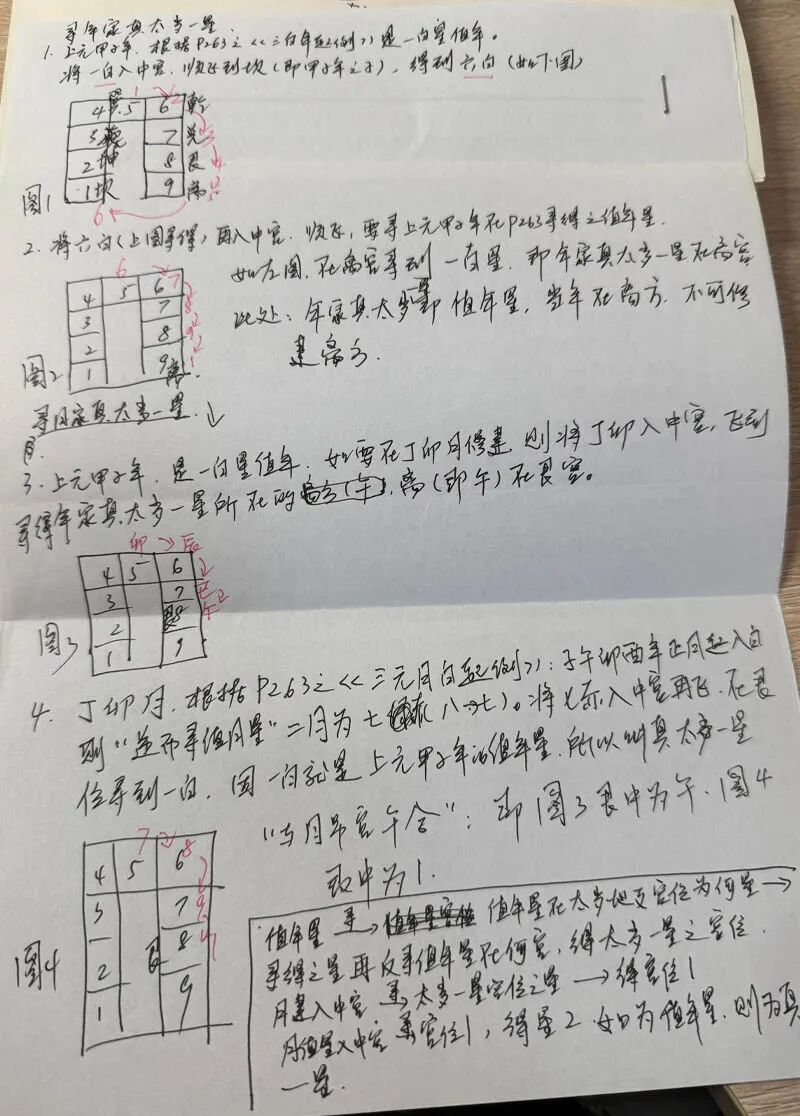 寻年家真太岁一星.
1. 上元甲子年. 根据P263之《三白年起例》是一白星值年。
将一白入中宫. 顺飞到坎(即甲子年之子), 得到六白(如下图)
1
4 巽 5 6 乾
3 震 7 兑
2 坤 8 艮
1 坎 9 离
6
图1
2. 将六白(上图寻得)再入中宫. 顺飞, 要寻上元甲子年在P263寻得之值年星.
如左图, 在离宫寻到一白星. 即年家真太岁一星在离宫
此处: 年家真太岁一星即值年星, 当年在离方, 不可修
建离方.
6 7
4 5 6
3 7 8
2 8 9
1 9 离 1
图2
寻月家真太岁一星.
3. 上元甲子年. 是一白星值年. 如要在丁卯月修建, 则将丁卯入中宫, 飞到
寻得年家真太岁一星所在的 离(即午)在艮宫。
卯 辰
4 5 6
3 7 巳
2 8 午
1 9
图3
4. 丁卯月. 根据P263之《三元月白起例》: 子午卯酉年正月起八白
则"逆而寻值月星"二月为七(八→七)。将七赤入中宫再飞. 在艮
位寻到一白. 因一白就是上元甲子年的值年星. 所以叫真太岁一星
"与月吊宫午合": 即图3艮中为午. 图4
艮中为1.
7 8
4 5 6
3 7 9
2 8 1
1 9
图4
值年星 寻→ 值年星在太岁地支宫位为何星→
寻得之星再反寻值年星在何宫, 得太岁一星之宫位.
月建入中宫 寻→ 太岁一星宫位之星 → 得宫位1
月值星入中宫 寻宫位1, 得星2. 如为值年星. 则为真
一星.